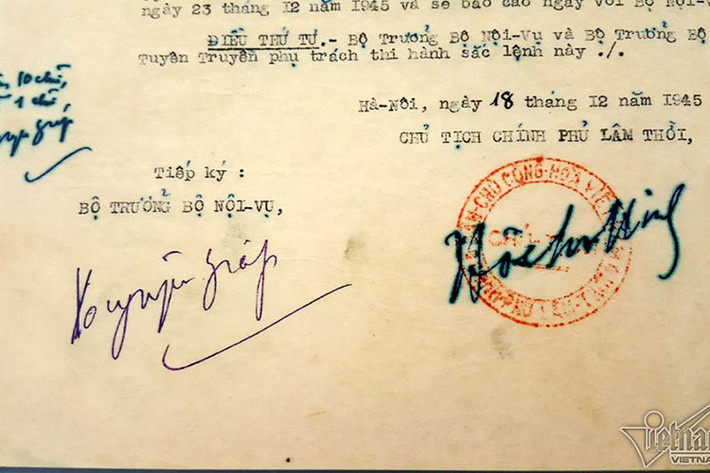 ngày 23 tháng 12 năm 1945 và sẽ báo cáo ngay với Bộ Nội-V
ĐIỀU THỨ TƯ.- Bộ Trưởng Bộ Nội-Vụ và Bộ Trưởng Bộ
Tuyên Truyền phụ trách thi hành sắc lệnh này ./.
10 chữ,
1 chữ,
Hà-Nội, ngày 18 tháng 12 năm 1945
CHỦ TỊCH CHÍNH PHỦ LÂM THỜI,
Tiếp ký :
BỘ TRƯỞNG BỘ NỘI-VỤ,
Võ nguyên Giáp
Hồ Chí Minh
CHỦ CỘNG HOÀ VIỆ
PHỦ LÂM THỜI
Vietnam
VIETNA